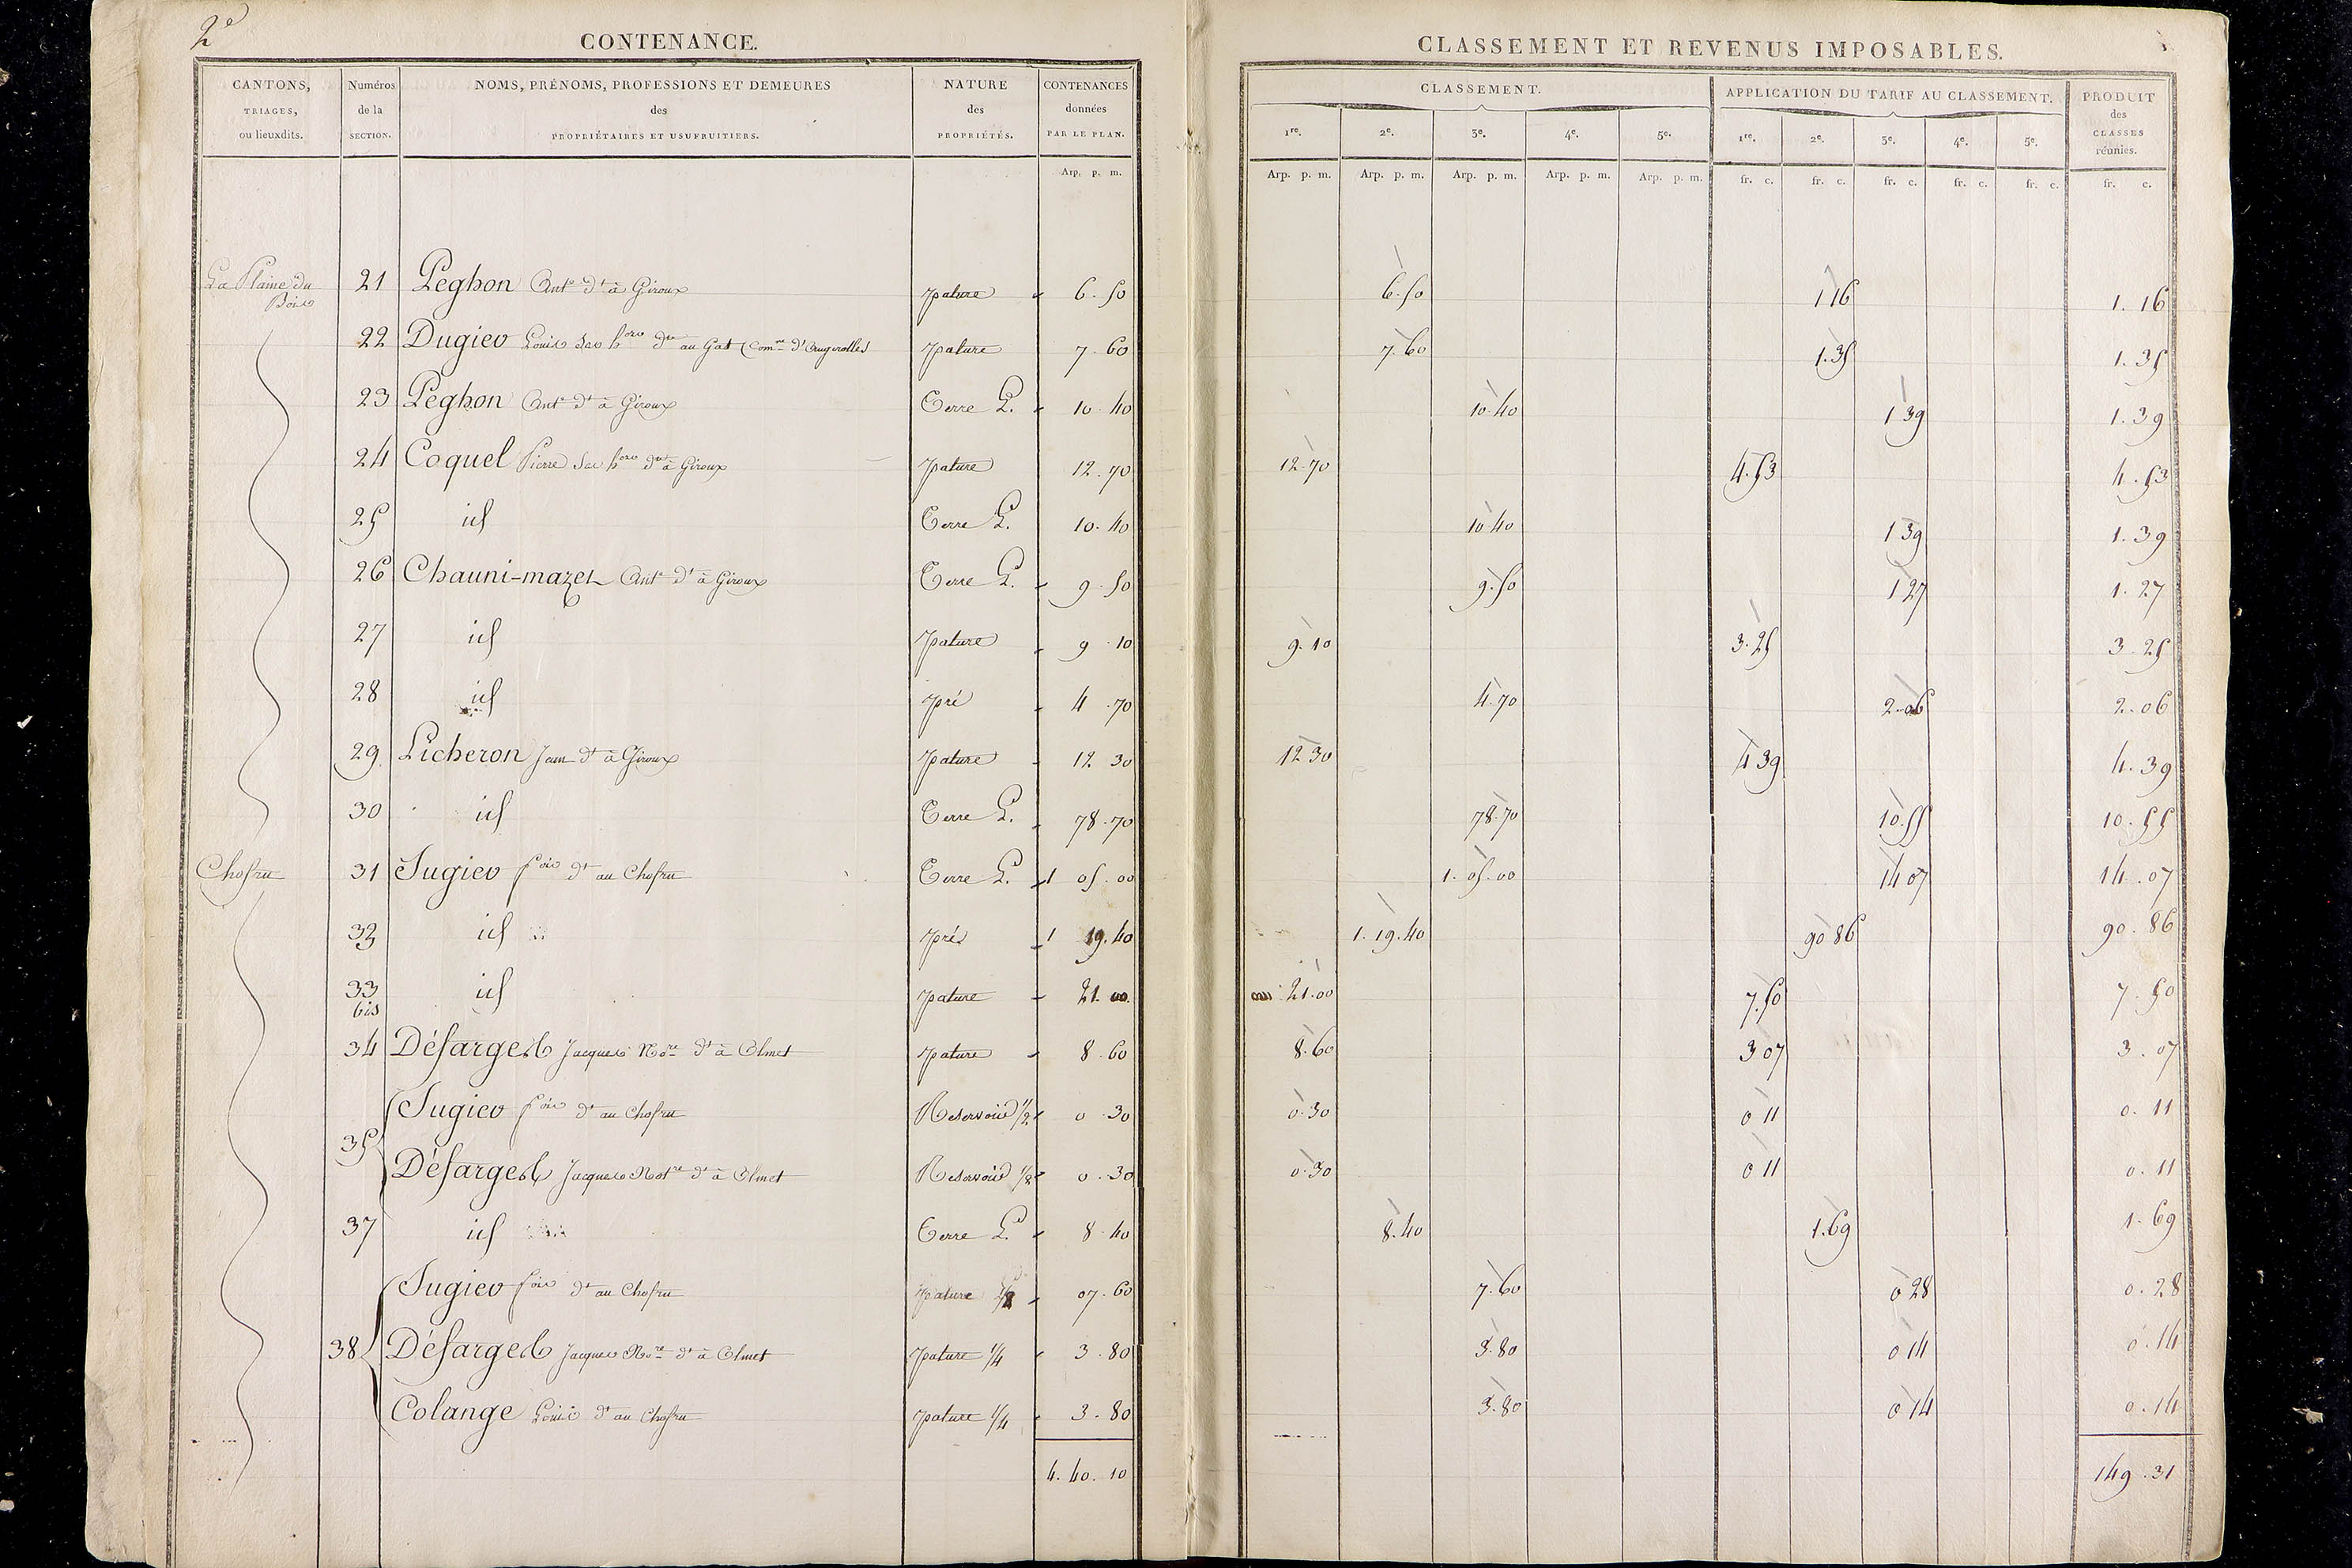 2e
CONTENANCE.
CANTONS, TRIAGES, ou lieuxdits. | Numéros de la SECTION. | NOMS, PRÉNOMS, PROFESSIONS ET DEMEURES des PROPRIÉTAIRES ET USUFRUITIERS. | NATURE des PROPRIÉTÉS. | CONTENANCES données PAR LE PLAN.
Arp. p. m.
CLASSEMENT ET REVENUS IMPOSABLES.
CLASSEMENT. | APPLICATION DU TARIF AU CLASSEMENT. | PRODUIT des CLASSES réunies.
1re. 2e. 3e. 4e. 5e. | 1re. 2e. 3e. 4e. 5e.
Arp. p. m. Arp. p. m. Arp. p. m. Arp. p. m. Arp. p. m. fr. c. fr. c. fr. c. fr. c. fr. c. fr. c.
La Plaine du Bois 21 Peghon Ante dt à Giroux pature 6.50 6.50 1 16 1.16
22 Dugiev Louis ses hers dts au Gat (Comne d'Augerolles pature 7.60 7.60 1.35 1.35
23 Peghon Ante dt à Giroux Terre L. 10.40 10.40 1 39 1.39
24 Coquel Pierre ses hers dts à Giroux pature 12.70 12.70 4.53 4.53
25 id Terre L. 10.40 10 40 1 39 1.39
26 Chauni-mazel Ante dt à Giroux Terre L. 9.50 9.50 1 27 1.27
27 id pature 9 10 9.10 3.25 3.25
28 id pré 4.70 4.70 2.06 2.06
29 Licheron Jean dt à Giroux pature 12 30 12 30 4 39 4.39
30 id Terre L. 78.70 78.70 10.55 10.55
Chofru 31 Sugiev fois dt au Chofru Terre L. 1 05.00 1.05.00 14 07 14.07
32 id pré 1 19.40 1.19.40 90 86 90.86
33 bis id pature 21.00 21.00 7.50 7.50
34 Défarges Jacques Nore dt à Olmet pature 8.60 8.60 3 07 3.07
35 Sugiev fois dt au Chofru Reservoir 1/2 0.30 0.30 0 11 0.11
Défarges Jacques Notre dt à Olmet Reservoir 1/2 0.30 0.30 0 11 0.11
37 id Terre L. 8.40 8.40 1.69 1.69
38 Sugiev fois dt au Chofru pature 1/2 07.60 7.60 0 28 0.28
Défarges Jacques Nore dt à Olmet pature 1/4 3.80 3.80 0 14 0.14
Colange Louis dt au Chofru pature 1/4 3.80 3.80 0 14 0.14
4.40.10 149.31